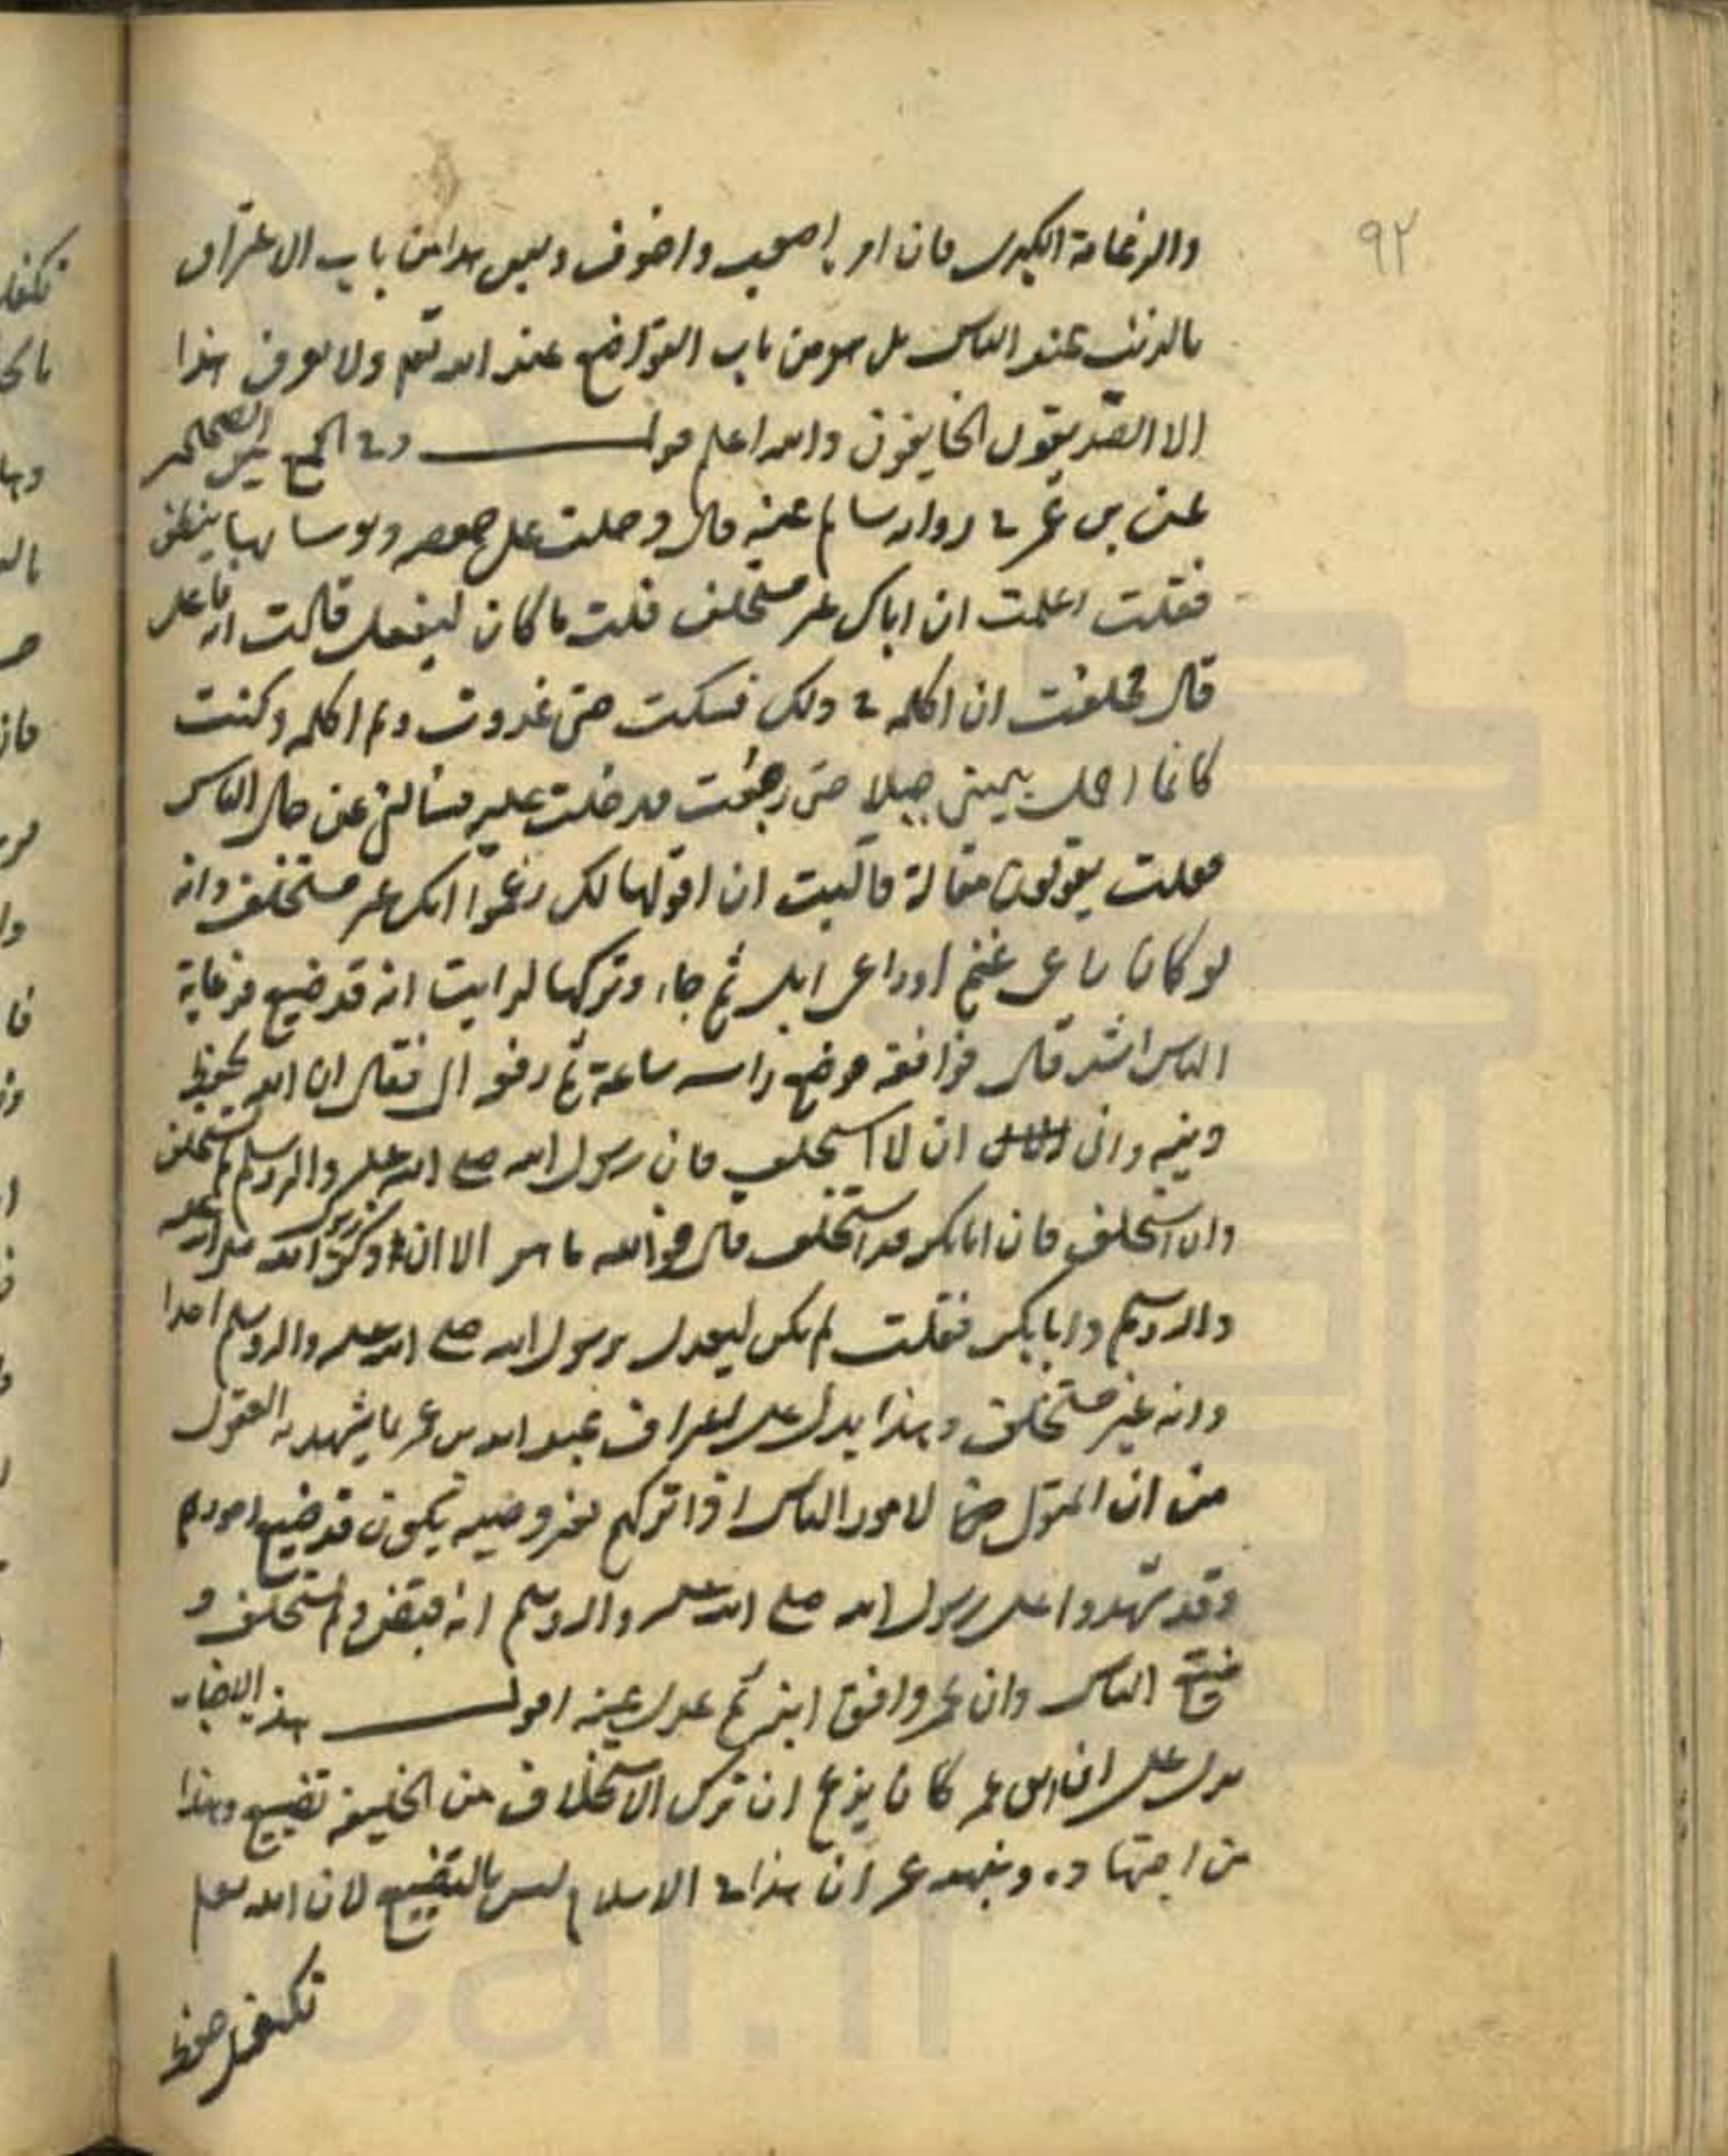 ٩٢
والزعامة الكبرى فان امرها صعب واخوف وليس هذا من باب الاعتراف
بالذنب عند الناس بل هو من باب التواضع عند الله تعم ولا يعرف هذا
الا الصديقون الخايفون والله اعلم قوله وفي الجمع بين الصحيحين
عن بن عمر في رواية سالم عنه قال دخلت على حفصة ونوساتها ينطف
فقلت اعلمت ان اباك عمر مستخلف قلت ما كان ليفعل قالت انه فاعل
قال فحلفت ان اكلمه في ذلك فسكت حتى غدوت ولم اكلمه وكنت
كانما احمل بيميني جبلا حتى رجعت فدخلت عليه فسألني عن حال الناس
فقلت يقولون مقالة فاليت ان اقولها لك زعموا انك غير مستخلف وانه
لو كان راعي غنم او راعي ابل ثم جاء وتركها لرايت انه قد ضيع فرعاية
الناس اشد قال فوافقه فوضع راسه ساعة ثم رفعه الي فقال ان الله يحفظ
دينه واني ان لا استخلف فان رسول الله صلى الله عليه واله وسلم لم يستخلف
وان استخلف فان ابابكر قد استخلف قال فوالله ما هو الا ان ذكر رسول الله صلى الله عليه
واله وسلم وابابكر فقلت لم يكن ليعدل برسول الله صلى الله عليه واله وسلم احدا
وانه غير مستخلف وهذا يدل على اعتراف عبد الله بن عمر بما يشهد به العقول
من ان المتولي لامور الناس اذا تركهم بغير وصية يكون قد ضيع امورهم
وقد شهدوا على رسول الله صلى الله عليه واله وسلم انه قبض ولم يستخلف و
ضيع الناس وان عمر وافق ابنه ثم عدل عنه اقول هذه الاخبار
يدل على ان ابن عمر كان يزعم ان ترك الاستخلاف من الخليفة تضييع وهذا
من اجتهاده ومذهب عمر ان هذا في الاسلام ليس بالتضييع لان الله تعم
تكفل حفظ